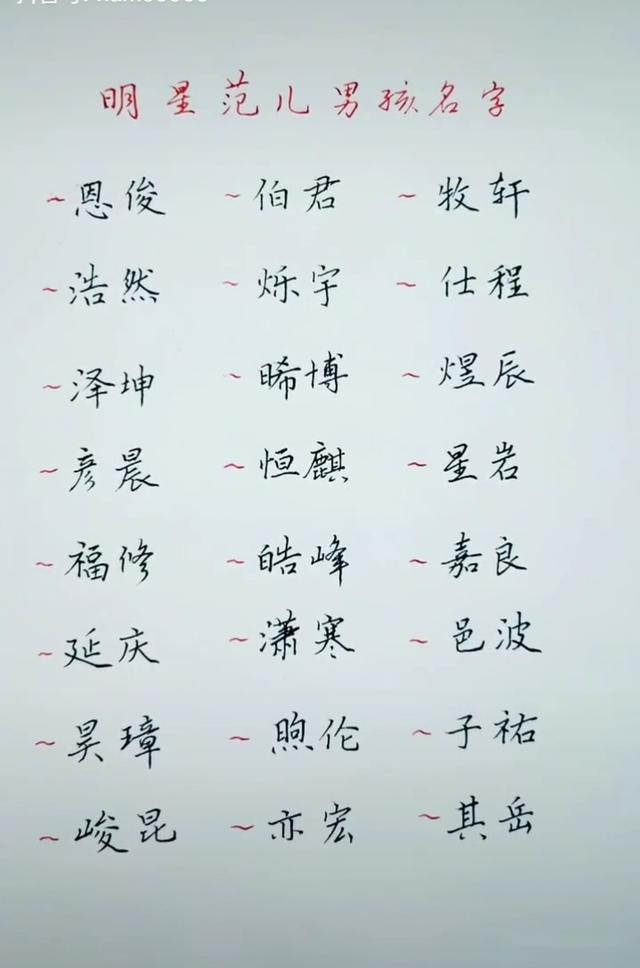 明星范儿男孩名字
~恩俊 ~伯君 ~牧轩
~浩然 ~烁宇 ~仕程
~泽坤 ~晞博 ~煜辰
~彦晨 ~恒麒 ~星岩
~福修 ~皓峰 ~嘉良
~延庆 ~潇寒 ~邑波
~昊璋 ~煦伦 ~子祐
~峻昆 ~亦宏 ~其岳